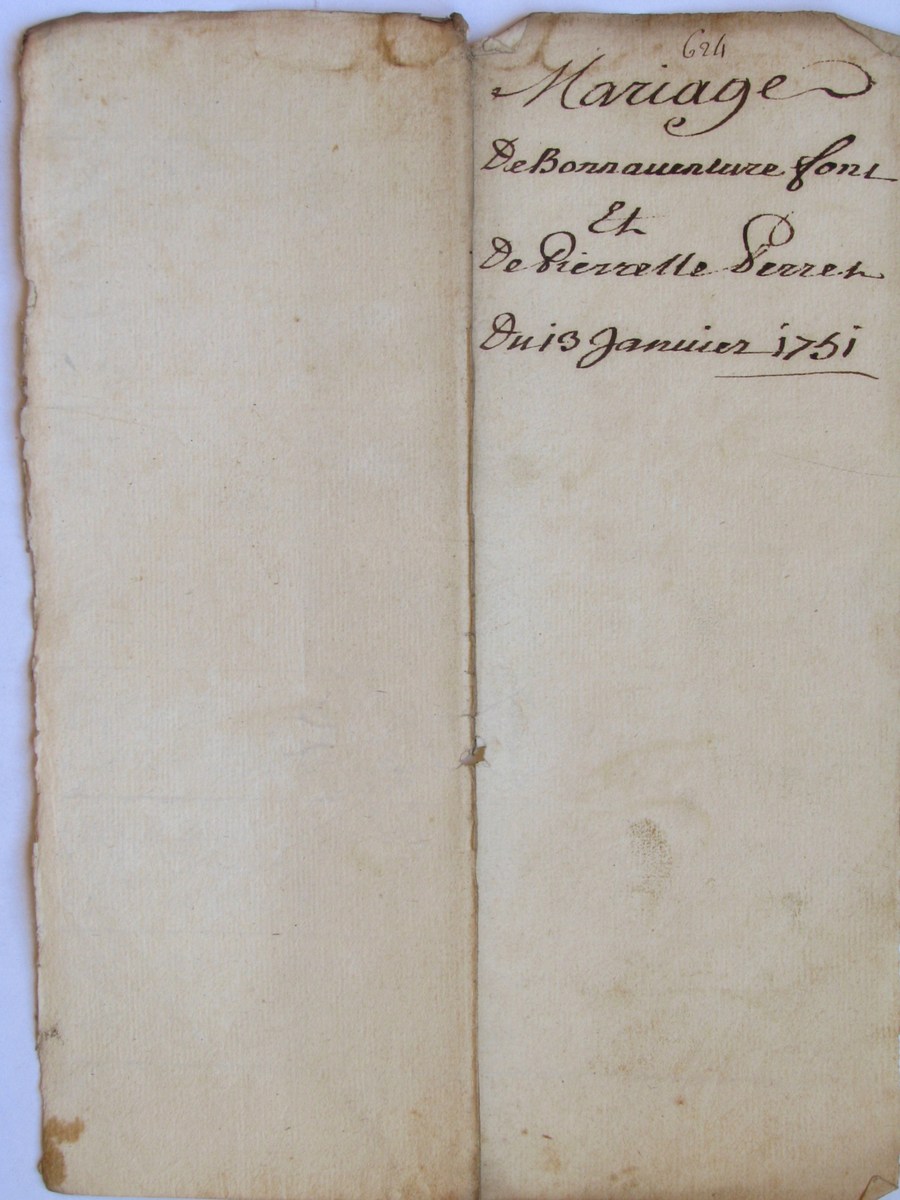 624
Mariage
De Bonnauenture font
Et
De Pierrette Perret
Du 13 Januier 1751